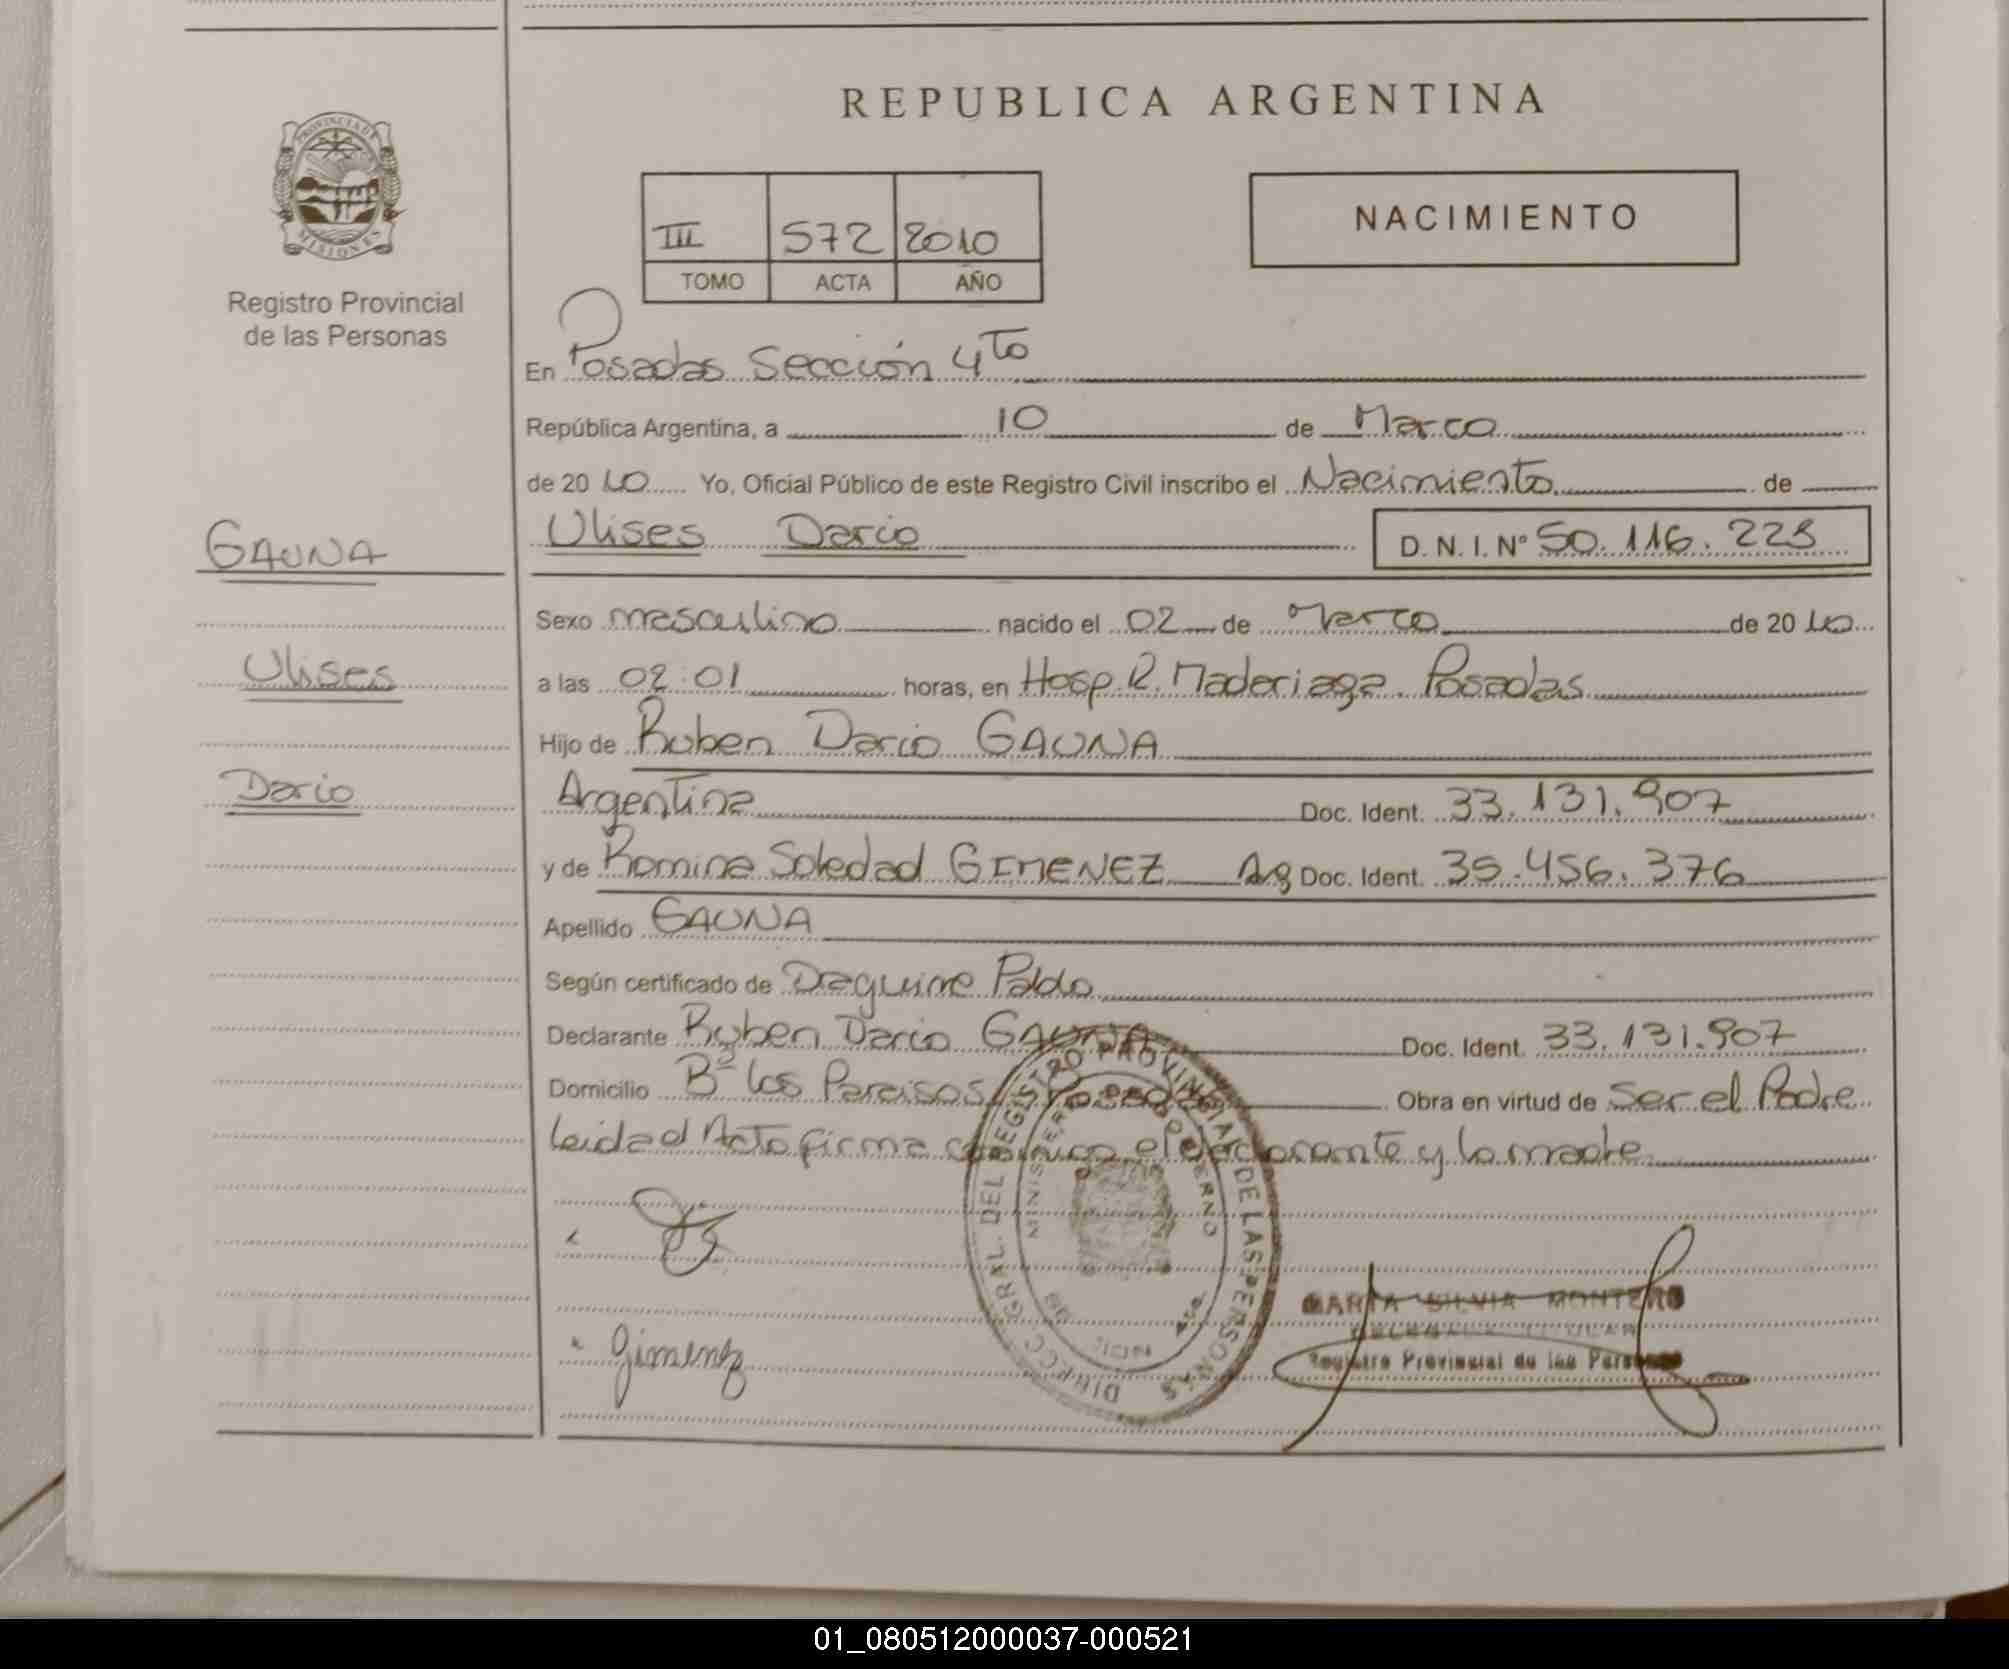 REPUBLICA ARGENTINA
PROVINCIA DE
MISIONES
Registro Provincial
de las Personas
III 572 2010
TOMO ACTA AÑO
NACIMIENTO
En Posadas Sección 4to
República Argentina, a 10 de Marzo
de 2010 Yo, Oficial Público de este Registro Civil inscribo el Nacimiento de
GAUNA
Ulises Dario D. N. I. Nº 50.116.223
Sexo masculino nacido el 02 de Marzo de 2010
Ulises
a las 02:01 horas, en Hosp. R. Maderiaga. Posadas
Hijo de Ruben Dario GAUNA
Dario
Argentina Doc. Ident. 33.131.907
y de Romina Soledad GIMENEZ Arg Doc. Ident. 35.456.376
Apellido GAUNA
Según certificado de Pablo
Declarante Ruben Dario GAUNA Doc. Ident. 33.131.907
Domicilio Bº los Paraisos Posadas Obra en virtud de Ser el Padre
Leida el Acta firma conmigo el declarante y la madre
Gimenez
DIR.CC GRAL. DEL REGISTRO PROVINCIAL DE LAS PERSONAS
MINISTERIO DE GOBIERNO
MARTA SILVIA MONTERO
Registro Provincial de las Personas
01_080512000037-000521